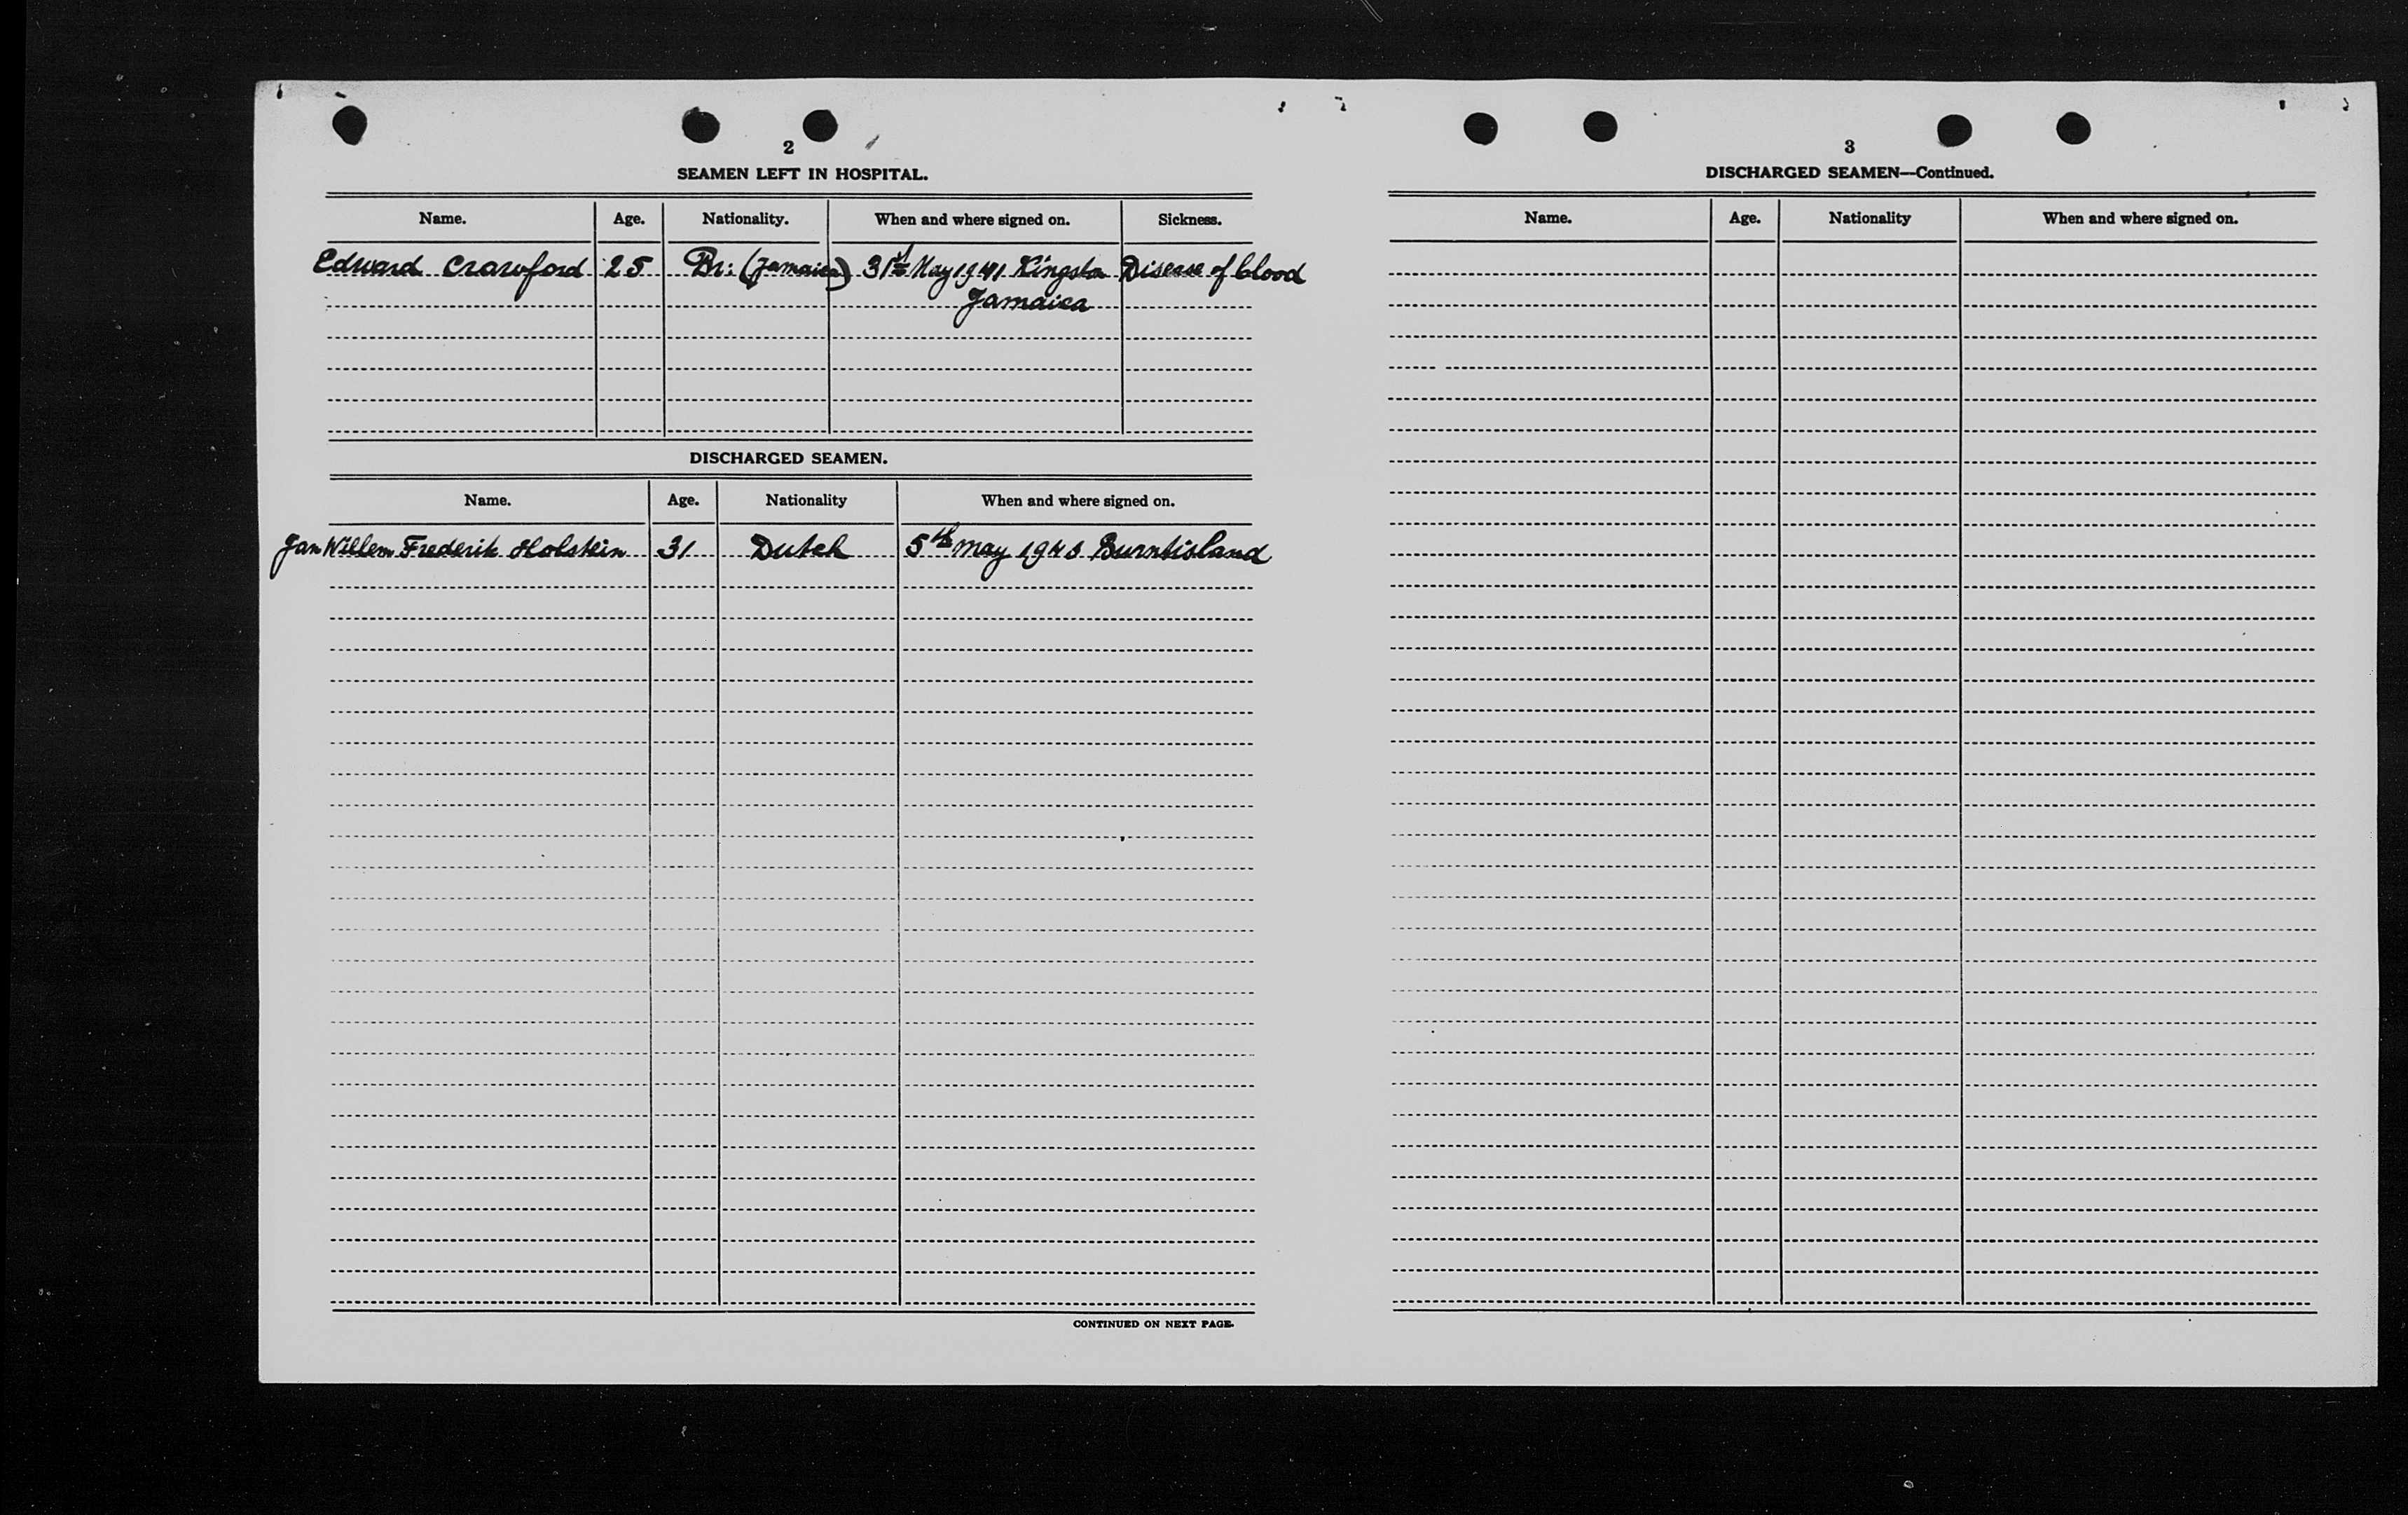 2
SEAMEN LEFT IN HOSPITAL.
Name. Age. Nationality. When and where signed on. Sickness.
Edward Crawford 25 Br: (Jamaica) 31st May 1941 Kingston Disease of blood
Jamaica
DISCHARGED SEAMEN.
Name. Age. Nationality When and where signed on.
Jan Willem Frederik Holstein 31 Dutch 5th May Burntisland
CONTINUED ON NEXT PAGE.
3
DISCHARGED SEAMEN—Continued.
Name. Age. Nationality When and where signed on.